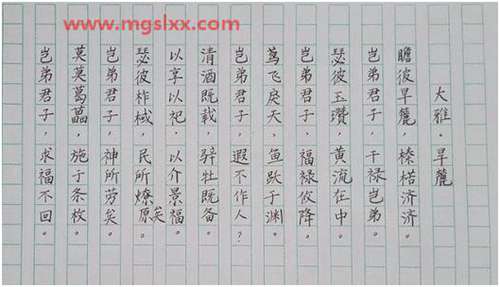 www.mgslxx.com
大雅·旱麓
瞻彼旱麓，榛楛济济。
岂弟君子，干禄岂弟。
瑟彼玉瓒，黄流在中。
岂弟君子，福禄攸降。
鸢飞戾天，鱼跃于渊。
岂弟君子，遐不作人？
清酒既载，骍牡既备。
以享以祀，以介景福。
瑟彼柞棫，民所燎原矣。
岂弟君子，神所劳矣。
莫莫葛藟，施于条枚。
岂弟君子，求福不回。